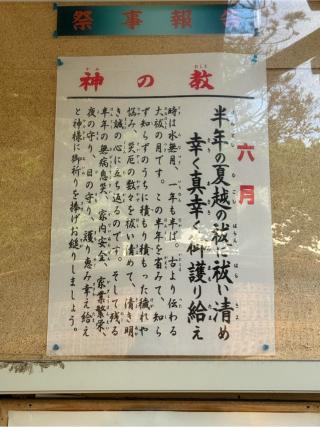 祭事報
神の教
六月
半年の夏越の祓に祓い清め
幸く真幸く御護り給え
時は水無月、一年も半ば。古より伝わる
大祓の月です。この半年を省みて、知ら
ず知らずのうちに積もり積もった穢れや
悩み、災厄の数々を祓い清めて、清き明
き誠の心に立ち返るのです。そして残る
半年の無病息災、家内安全、家業繁栄、
夜の守り、日の守り、護り恵み幸え給え
と神様に御祈りを捧げお縋りしましょう。